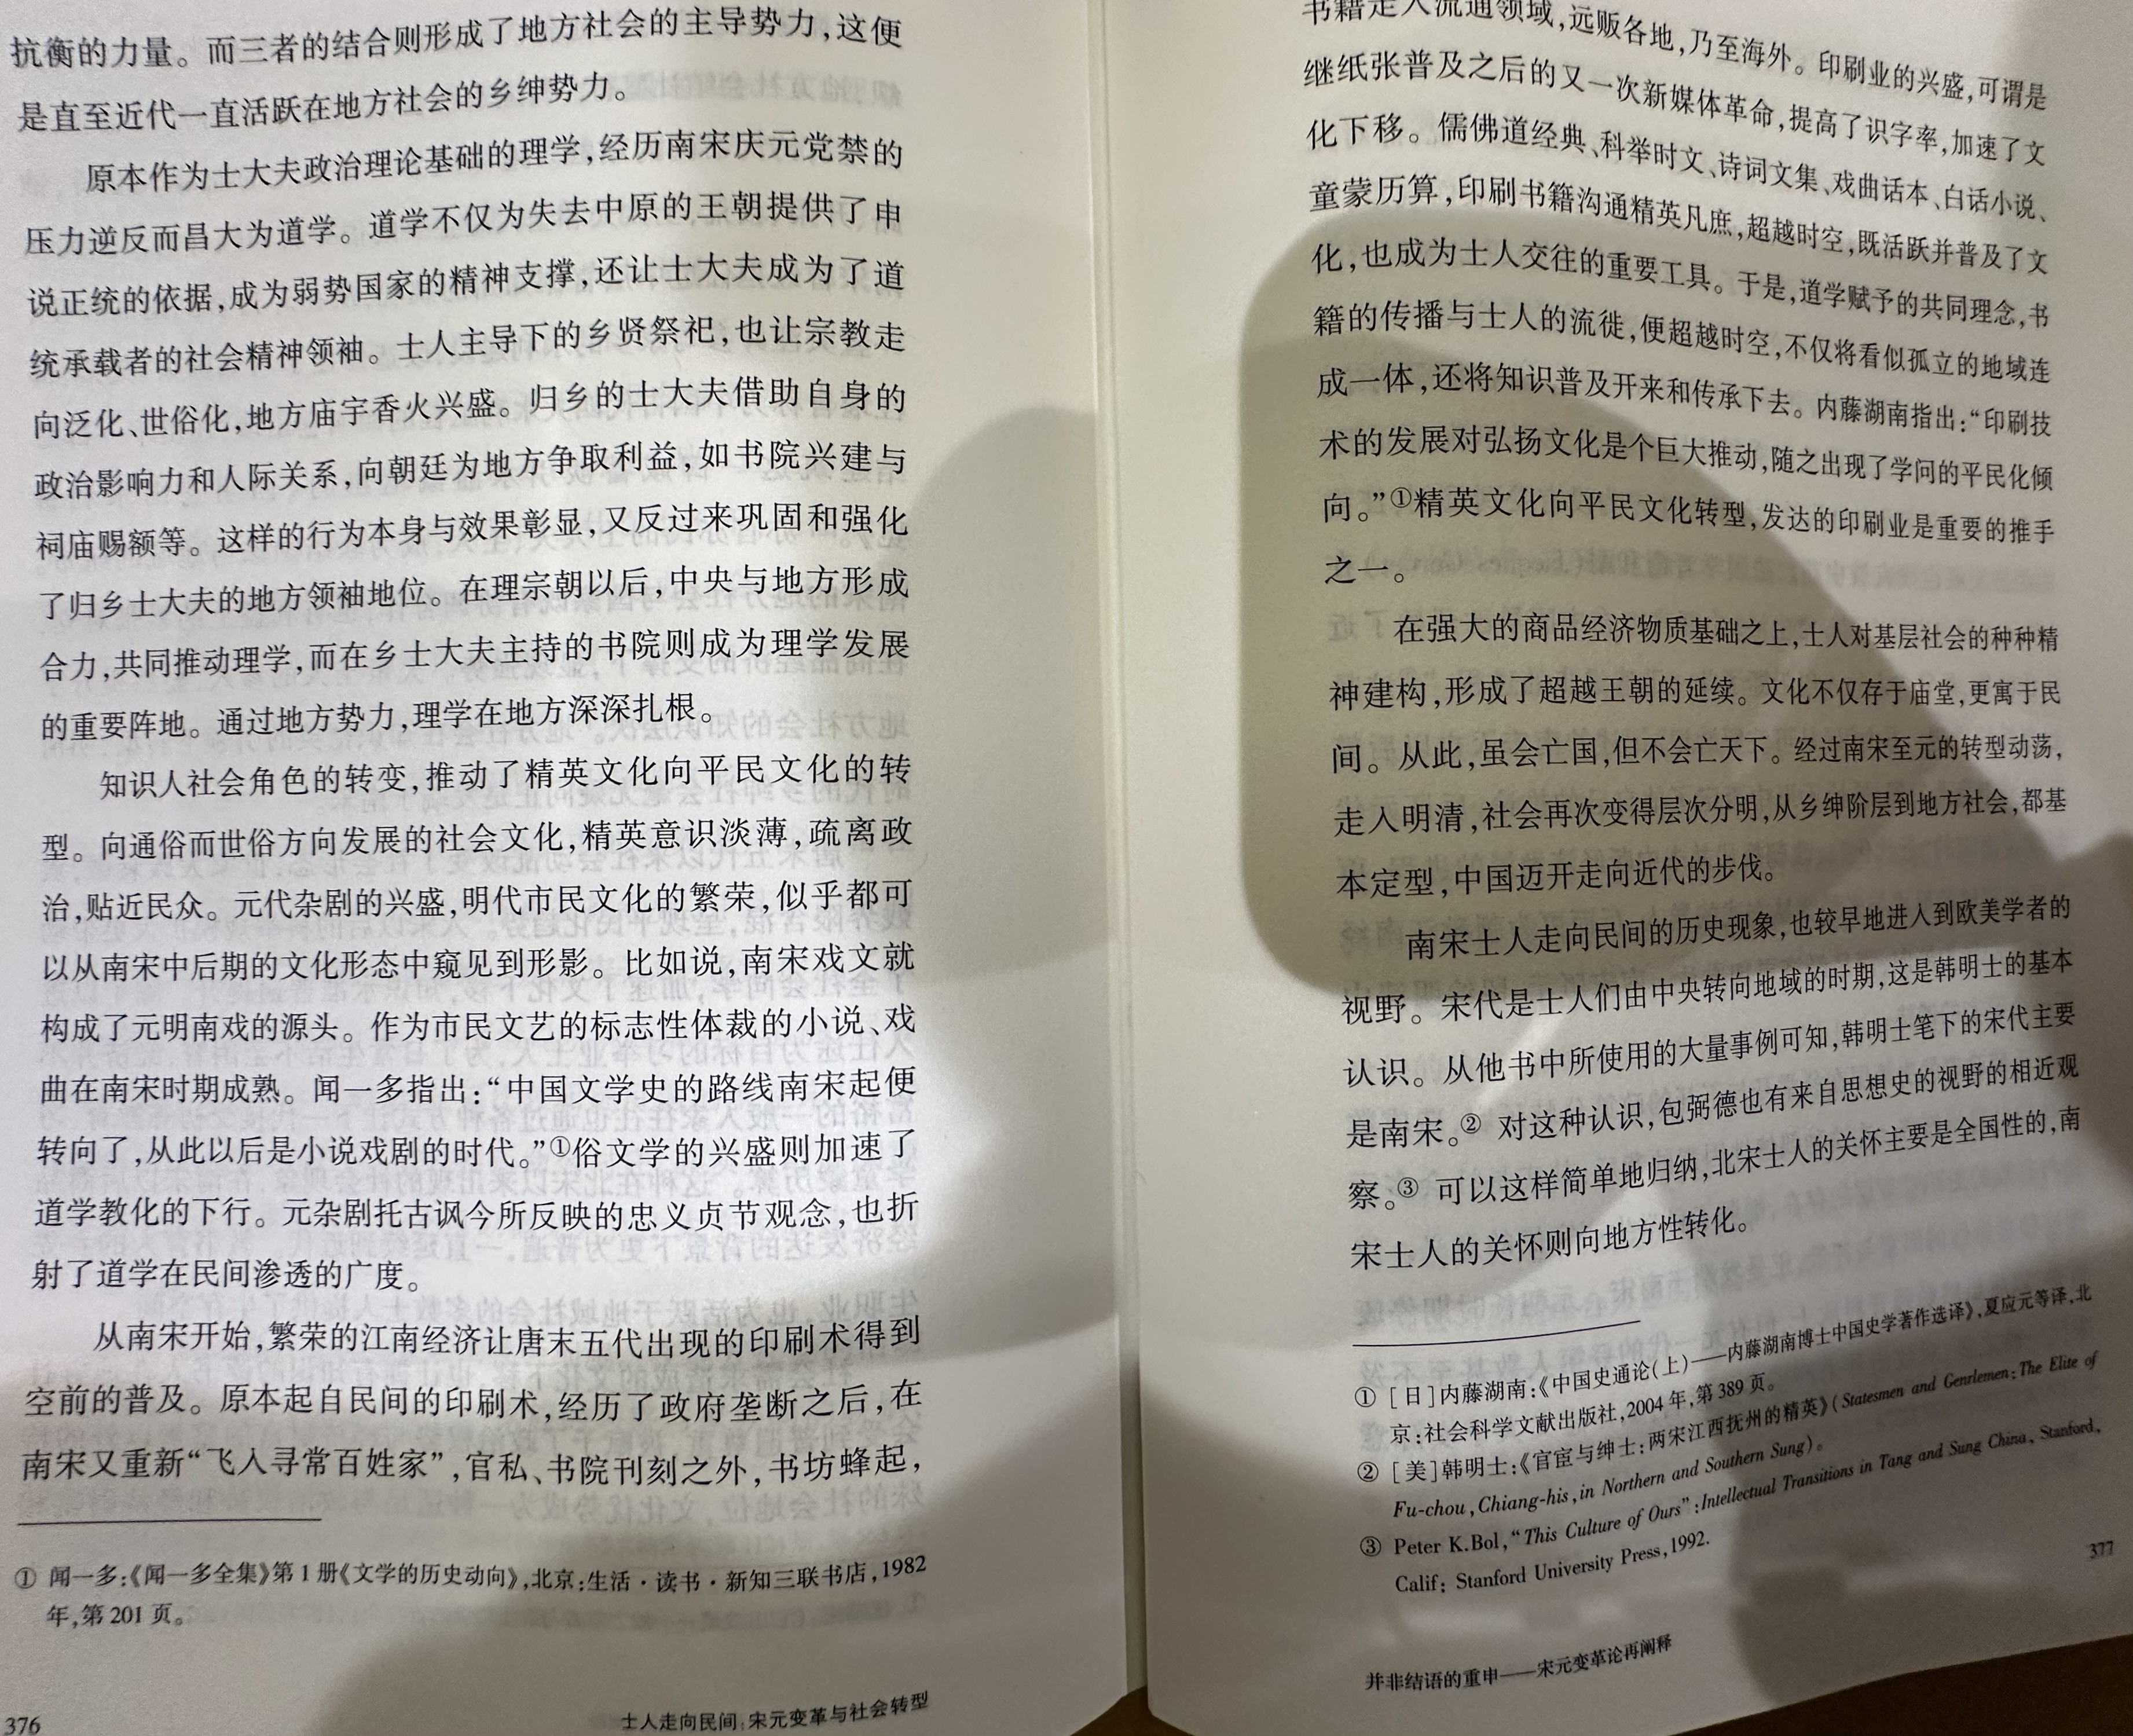 抗衡的力量。而三者的结合则形成了地方社会的主导势力,这便
是直至近代一直活跃在地方社会的乡绅势力。
原本作为士大夫政治理论基础的理学,经历南宋庆元党禁的
压力逆反而昌大为道学。道学不仅为失去中原的王朝提供了申
说正统的依据,成为弱势国家的精神支撑,还让士大夫成为了道
统承载者的社会精神领袖。士人主导下的乡贤祭祀,也让宗教走
向泛化、世俗化,地方庙宇香火兴盛。归乡的士大夫借助自身的
政治影响力和人际关系,向朝廷为地方争取利益,如书院兴建与
祠庙赐额等。这样的行为本身与效果彰显,又反过来巩固和强化
了归乡士大夫的地方领袖地位。在理宗朝以后,中央与地方形成
合力,共同推动理学,而在乡士大夫主持的书院则成为理学发展
的重要阵地。通过地方势力,理学在地方深深扎根。
知识人社会角色的转变,推动了精英文化向平民文化的转
型。向通俗而世俗方向发展的社会文化,精英意识淡薄,疏离政
治,贴近民众。元代杂剧的兴盛,明代市民文化的繁荣,似乎都可
以从南宋中后期的文化形态中窥见到形影。比如说,南宋戏文就
构成了元明南戏的源头。作为市民文艺的标志性体裁的小说、戏
曲在南宋时期成熟。闻一多指出:“中国文学史的路线南宋起便
转向了,从此以后是小说戏剧的时代。”①俗文学的兴盛则加速了
道学教化的下行。元杂剧托古讽今所反映的忠义贞节观念,也折
射了道学在民间渗透的广度。
从南宋开始,繁荣的江南经济让唐末五代出现的印刷术得到
空前的普及。原本起自民间的印刷术,经历了政府垄断之后,在
南宋又重新“飞入寻常百姓家”,官私、书院刊刻之外,书坊蜂起,
① 闻一多:《闻一多全集》第1册《文学的历史动向》,北京:生活·读书·新知三联书店,1982
年,第201页。
376
士人走向民间:宋元变革与社会转型
书籍走入流通领域,远贩各地,乃至海外。印刷业的兴盛,可谓是
继纸张普及之后的又一次新媒体革命,提高了识字率,加速了文
化下移。儒佛道经典、科举时文、诗词文集、戏曲话本、白话小说、
童蒙历算,印刷书籍沟通精英凡庶,超越时空,既活跃并普及了文
化,也成为士人交往的重要工具。于是,道学赋予的共同理念,书
籍的传播与士人的流徙,便超越时空,不仅将看似孤立的地域连
成一体,还将知识普及开来和传承下去。内藤湖南指出:“印刷技
术的发展对弘扬文化是个巨大推动,随之出现了学问的平民化倾
向。”①精英文化向平民文化转型,发达的印刷业是重要的推手
之一。
在强大的商品经济物质基础之上,士人对基层社会的种种精
神建构,形成了超越王朝的延续。文化不仅存于庙堂,更寓于民
间。从此,虽会亡国,但不会亡天下。经过南宋至元的转型动荡,
走入明清,社会再次变得层次分明,从乡绅阶层到地方社会,都基
本定型,中国迈开走向近代的步伐。
南宋士人走向民间的历史现象,也较早地进入到欧美学者的
视野。宋代是士人们由中央转向地域的时期,这是韩明士的基本
认识。从他书中所使用的大量事例可知,韩明士笔下的宋代主要
是南宋。② 对这种认识,包弼德也有来自思想史的视野的相近观
察。③ 可以这样简单地归纳,北宋士人的关怀主要是全国性的,南
宋士人的关怀则向地方性转化。
① [日]内藤湖南:《中国史通论(上)——内藤湖南博士中国史学著作选译》,夏应元等译,北
京:社会科学文献出版社,2004年,第389页。
② [美]韩明士:《官宦与绅士:两宋江西抚州的精英》(Statesmen and Genrlemen: The Elite of
Fu-chou, Chiang-his, in Northern and Southern Sung)。
③ Peter K.Bol, “This Culture of Ours”: Intellectual Transitions in Tang and Sung China, Stanford,
Calif: Stanford University Press, 1992.
377
并非结语的重申——宋元变革论再阐释